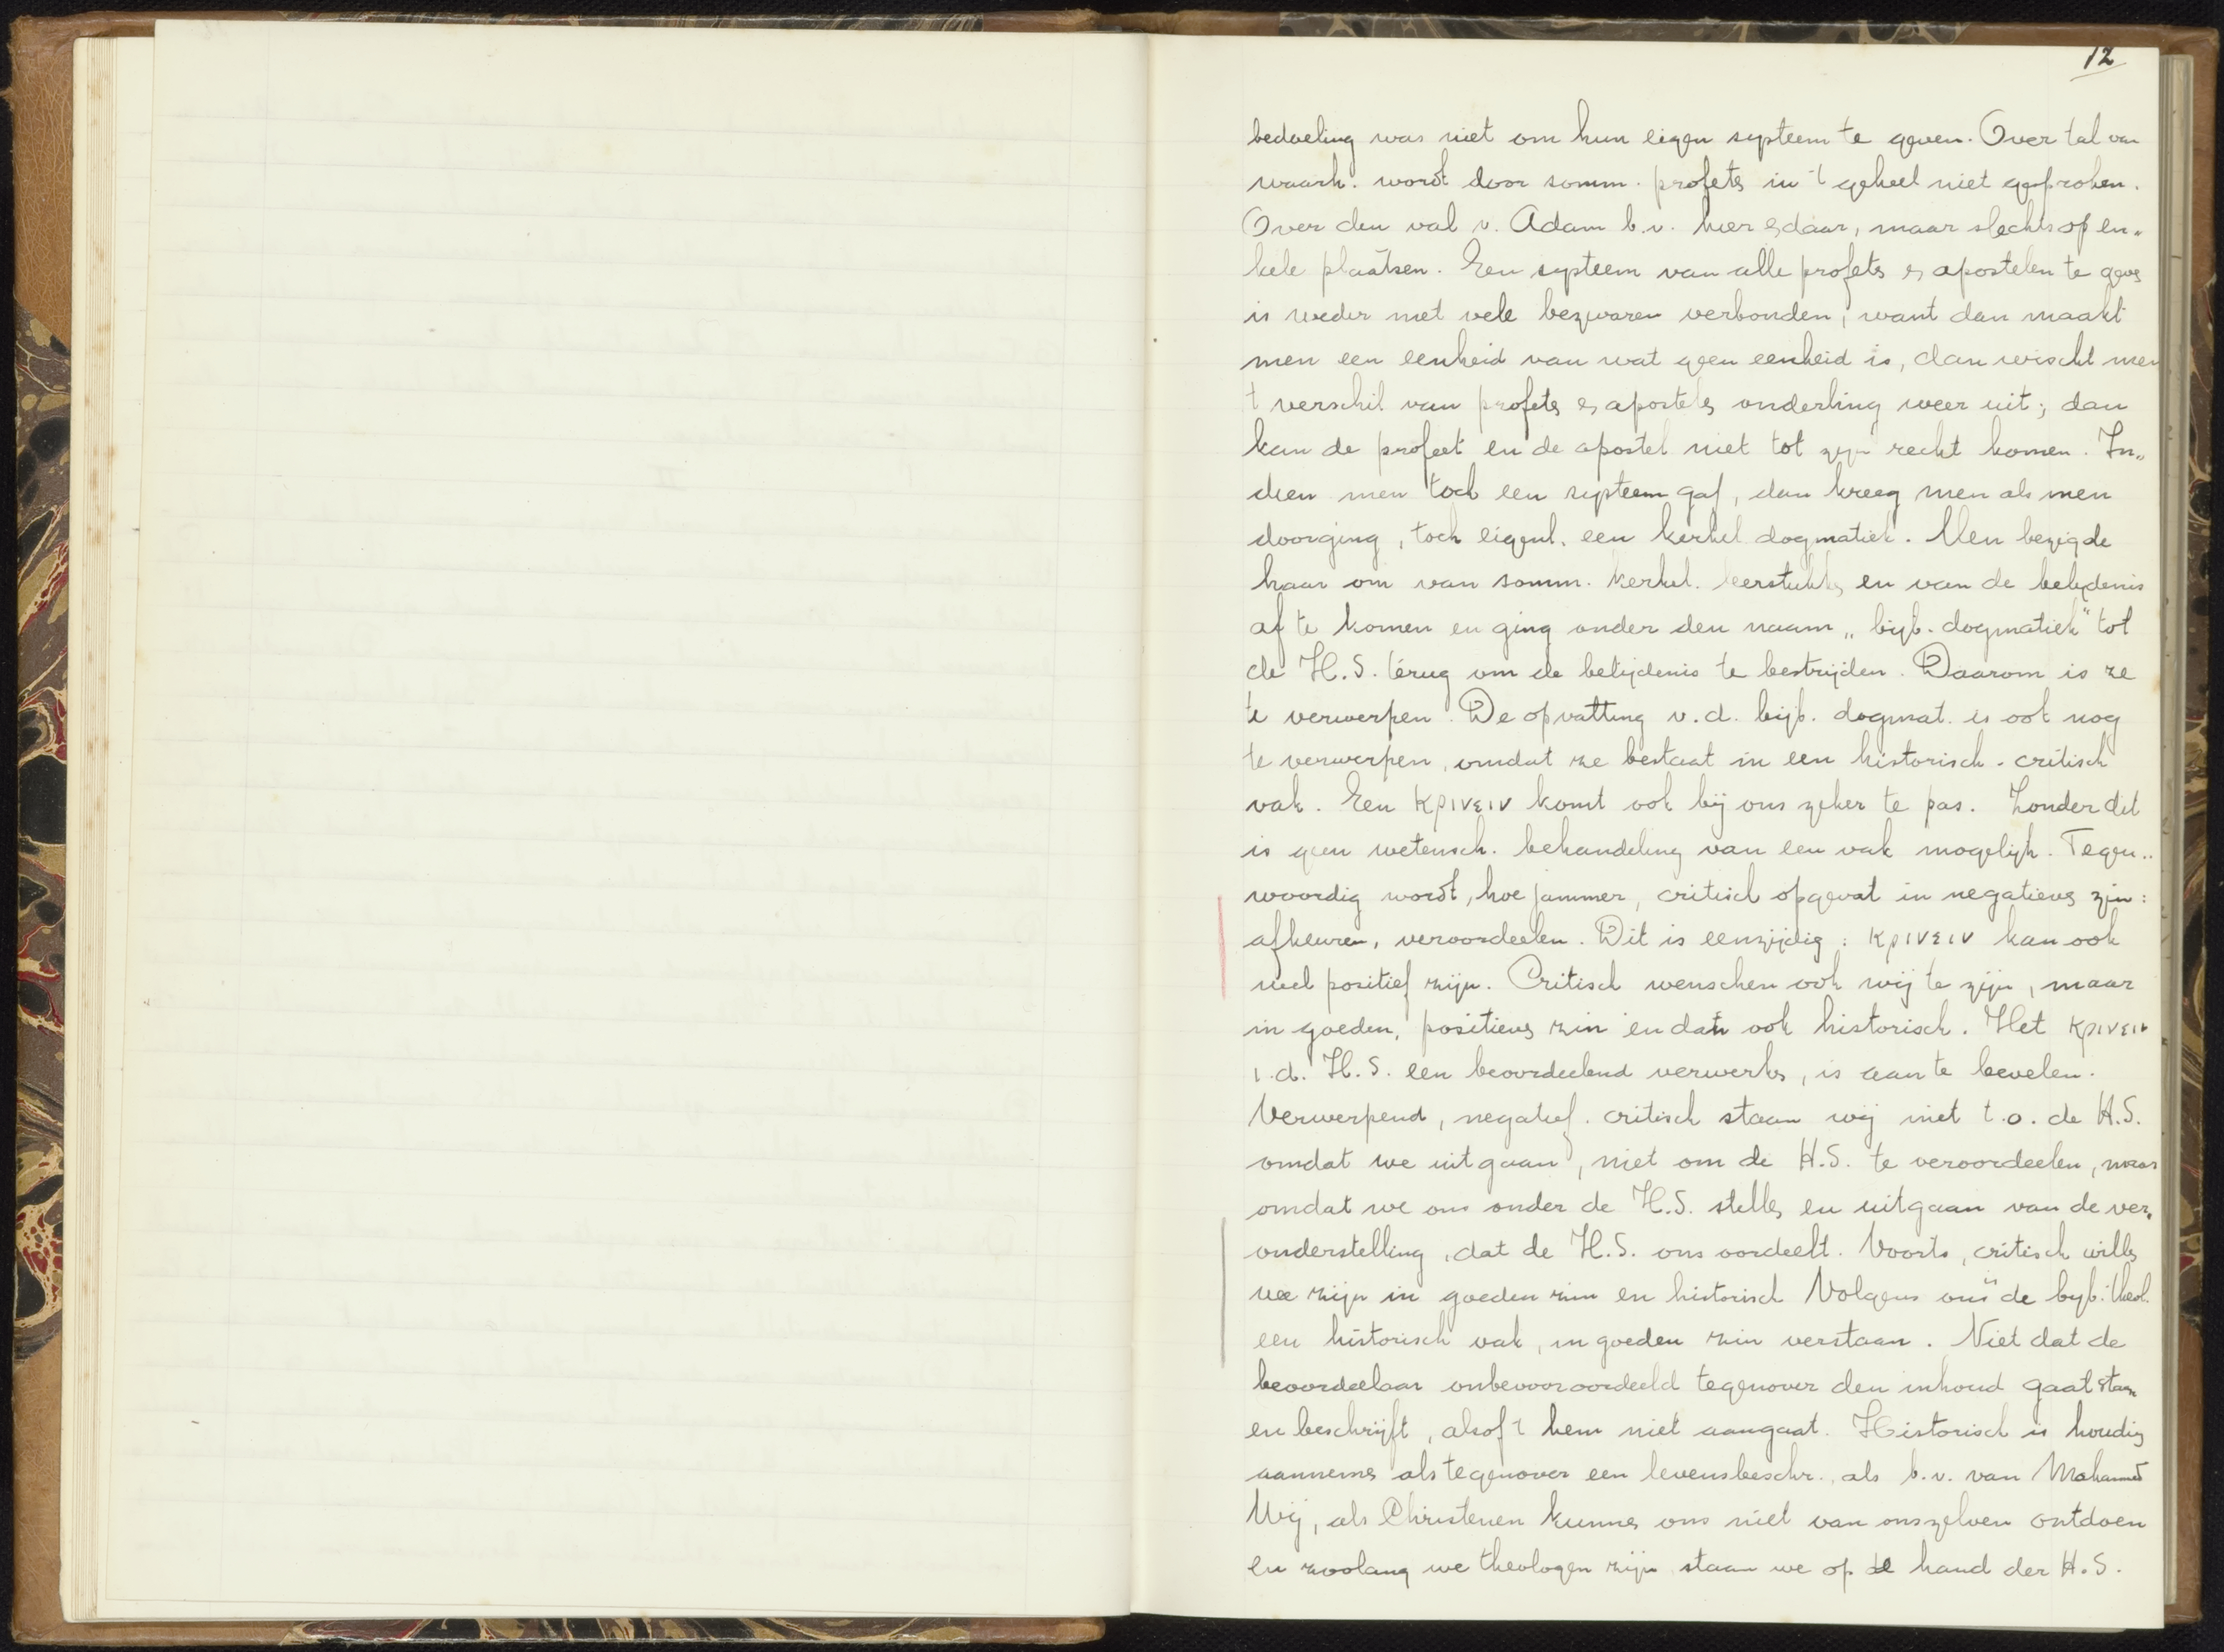 12
bedoeling was niet om hun eigen systeem te geven. Over tal van
waarh. wordt door somm. profets in 't geheel niet gesproken.
Over den val v. Adam b.v. hier en daar, maar slechts op en„
kele plaatsen. Een systeem van alle profets en apostelen te geven
is weder met vele bezwaren verbonden; want dan maakt
men een eenheid van wat geen eenheid is, dan wischt men
't verschil van profets en apostels onderling weer uit; dan
kan de profeet en de apostel niet tot zijn recht komen. In„
dien men toch een systeem gaf, dan kreeg men als men
doorging, toch eigenl. een kerkel. dogmatiek. Men bezigde
haar om van somm. kerkel. leerstukken en van de belijdenis
af te komen en ging onder den naam „bijb. dogmatiek" tot
de H.S. terug om de belijdenis te bestrijden. Daarom is ze
te verwerpen. De opvatting v.d. bijb. dogmat. is ook nog
te verwerpen, omdat ze bestaat in een historisch-critisch
vak. Een κρινειν komt ook bij ons zeker te pas. Zonder dit
is geen wetensch. behandeling van een vak mogelijk. Tegen„
woordig wordt, hoe jammer, critisch opgevat in negatieven zin:
afkeuren, veroordeelen. Dit is eenzijdig: κρινειν kan ook
wel positief zijn. Critisch wenschen ook wij te zijn, maar
in goeden, positieven zin en dan ook historisch. Het κρινειν
i.d. H.S. een beoordeelend verwerken, is aan te bevelen.
Verwerpend, negatief-critisch staan wij niet t.o. de H.S.
omdat we uitgaan, niet om de H.S. te veroordeelen, maar
omdat we ons onder de H.S. stellen en uitgaan van de ver„
onderstelling, dat de H.S. ons oordeelt. Voorts, critisch willen
we zijn in goeden zin en historisch Volgens ons is de bijb. theol.
een historisch vak, in goeden zin verstaan. Niet dat de
beoordeelaar onbevooroordeeld tegenover den inhoud gaat staan
en beschrijft, alsof 't hem niet aangaat. Historisch is houding
aannemen als tegenover een levensbeschr., als b.v. van Mohammed
Wij, als Christenen kunnen ons niet van onszelven ontdoen
en zoolang we theologen zijn staan we op de hand der H.S.
II